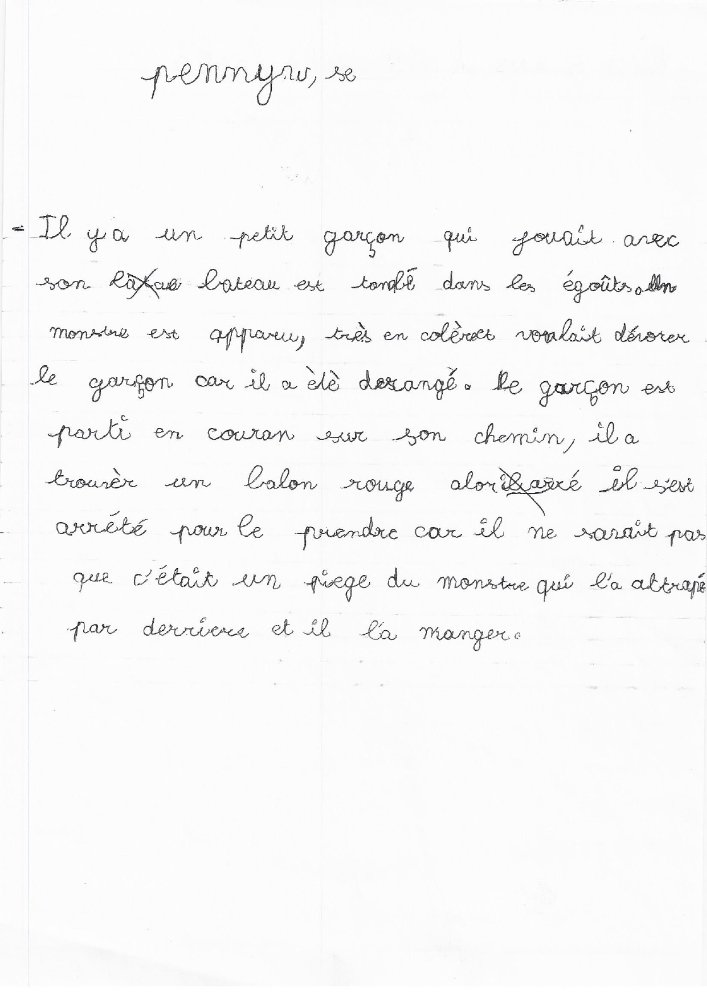 pennyw, se
- Il y a un petit garçon qui jouait avec
son bateau est tombé dans les égoûts. Un
monstre est apparu, très en colère et voulait dévorer
le garçon car il a èlè derangé. Le garçon est
parti en couran sur son chemin, il a
trouvèr un balon rouge alor il s'est
arrété pour le prendre car il ne savait pas
que c'était un piege du monstre qui l'a attrapé
par derriere et il l'a manger.